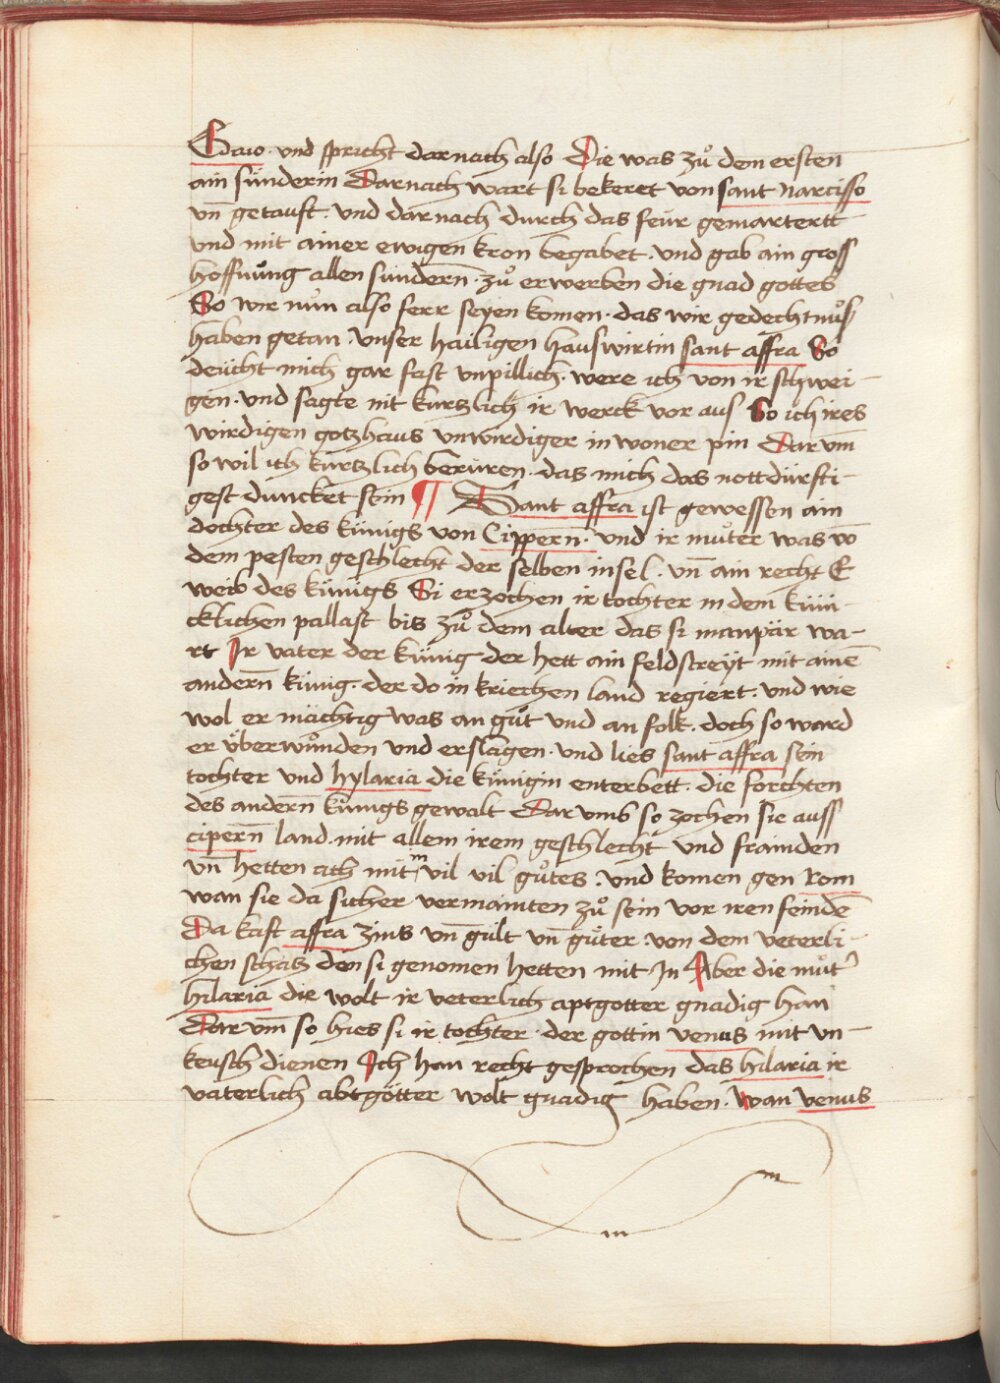 Gaio · und spricht darnach also Die was zuͦ dem ersten
ain sünderin Darnach wart si bekeret von sant Narcisso
vn̄ getauft · Vnd darnach durch das feür gemartertt
vnd mit ainer ewigen kron begabet · vnd gab ain gross
hoffnung allen sündern̄ · zuͦ erwerben die gnad gottes
So wir nun also ferr seyen komen · das wir gedechtnuͦs
haben getan · vnser hailigen hauswirtin sant affra So
deücht mich gar fast vnpillich · were ich von ir schwei-
gen · vnd sagte nit kurtzlich ir werck vor aus So ich ires
wirdigen gotzhaus vnwirdiger in woner pin Dar vm̄
so wil ich kurtzlich berüren · das mich das nottdürfti-
gest duncket sein ¶ Sant affra ist gewessen ain
dochter des künigs von Cippern · vnd ir muͦter was vō
dem pesten geschlecht der selben insel · vn̄ ain recht E
weib des künigs Si erzochen ir tochter in dem küni-
cklichen pallast bis zuͦ dem alter das si manpär wa-
rt Ir vater der künig der hett ain feldstreyt mit ainē
andern̄ künig · der do in kriechen land regiert · vnd wie
wol er mächtig was an guͦt vnd an folk · doch so ward
er überwunden vnd erslagen · vnd lies sant affra sein
tochter vnd hylaria die künigin enterbett · die forchten
des andern̄ künigs gewalt Dar vmb so zochen sie auss
cipern̄ land · mit allem irem geschlecht vnd frainden
vn̄ hetten ach mit in vil vil guͦtes · vnd komen gen Rom
wan sie da sicher vermainten zuͦ sein vor iren feindē
Da kaft affra zins vn̄ gült vn̄ guͤter · von dem veterli-
chen schatz den si genomen hetten mit In Aber die muͦtʾ
hilaria die wolt ir veterlich aptgotter gnadig han
Dar vm̄ so hies si ir tochter · der gottin venus mit vn-
keusch dienen Ich han recht gesprochen das hilaria ir
vaterlich abtgötter wolt gnadig haben · wan venus